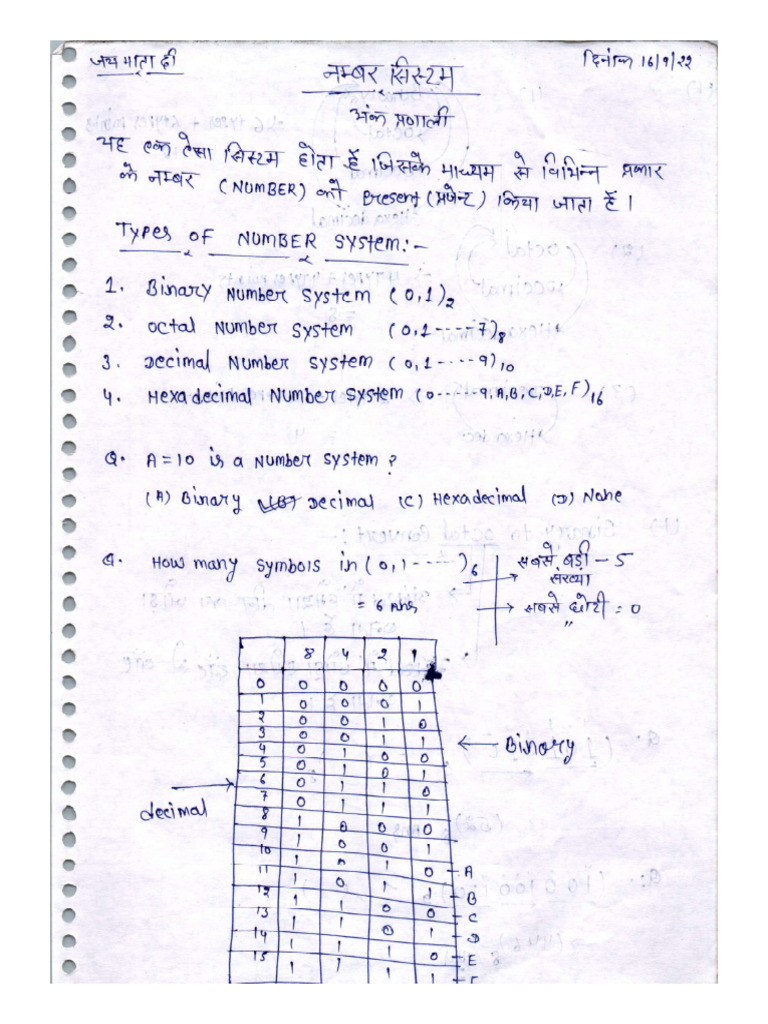 जय माता दी
दिनांक 16/9/22
नम्बर सिस्टम
अंक प्रणाली
यह एक ऐसा सिस्टम होता हैं जिसके माध्यम से विभिन्न प्रकार
के नम्बर (NUMBER) को Present (प्रजेन्ट) किया जाता हैं।
Types OF NUMBER System:-
1. Binary Number System (0,1)2
2. octal Number System (0,1----7)8
3. Decimal Number System (0,1----9)10
4. Hexadecimal Number System (0-----9,A,B,C,D,E,F)16
Q. A=10 is a Number System ?
(A) Binary (B) Decimal (C) Hexadecimal (D) None
Q. How many symbols in (0,1----)6
= 6 Ans
→ सबसे बड़ी संख्या – 5
→ सबसे छोटी " = 0
8 4 2 1
0 0 0 0 0
1 0 0 0 1
2 0 0 1 0
3 0 0 1 1
4 0 1 0 0
5 0 1 0 1
6 0 1 1 0
7 0 1 1 1
8 1 0 0 0
9 1 0 0 1
10 1 0 1 0 – A
11 1 0 1 1 – B
12 1 1 0 0 – C
13 1 1 0 1 – D
14 1 1 1 0 – E
15 1 1 1 1 – F
← Binary
decimal →